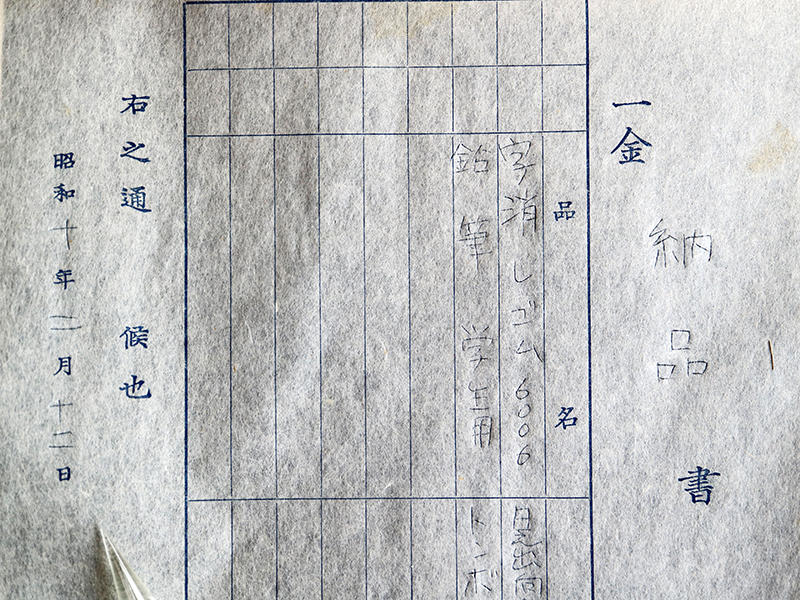 納品書
一金
品名
字消しゴム6006 日之出
鉛筆 学生用 トンボ
右之通 候也
昭和十年三月十二日